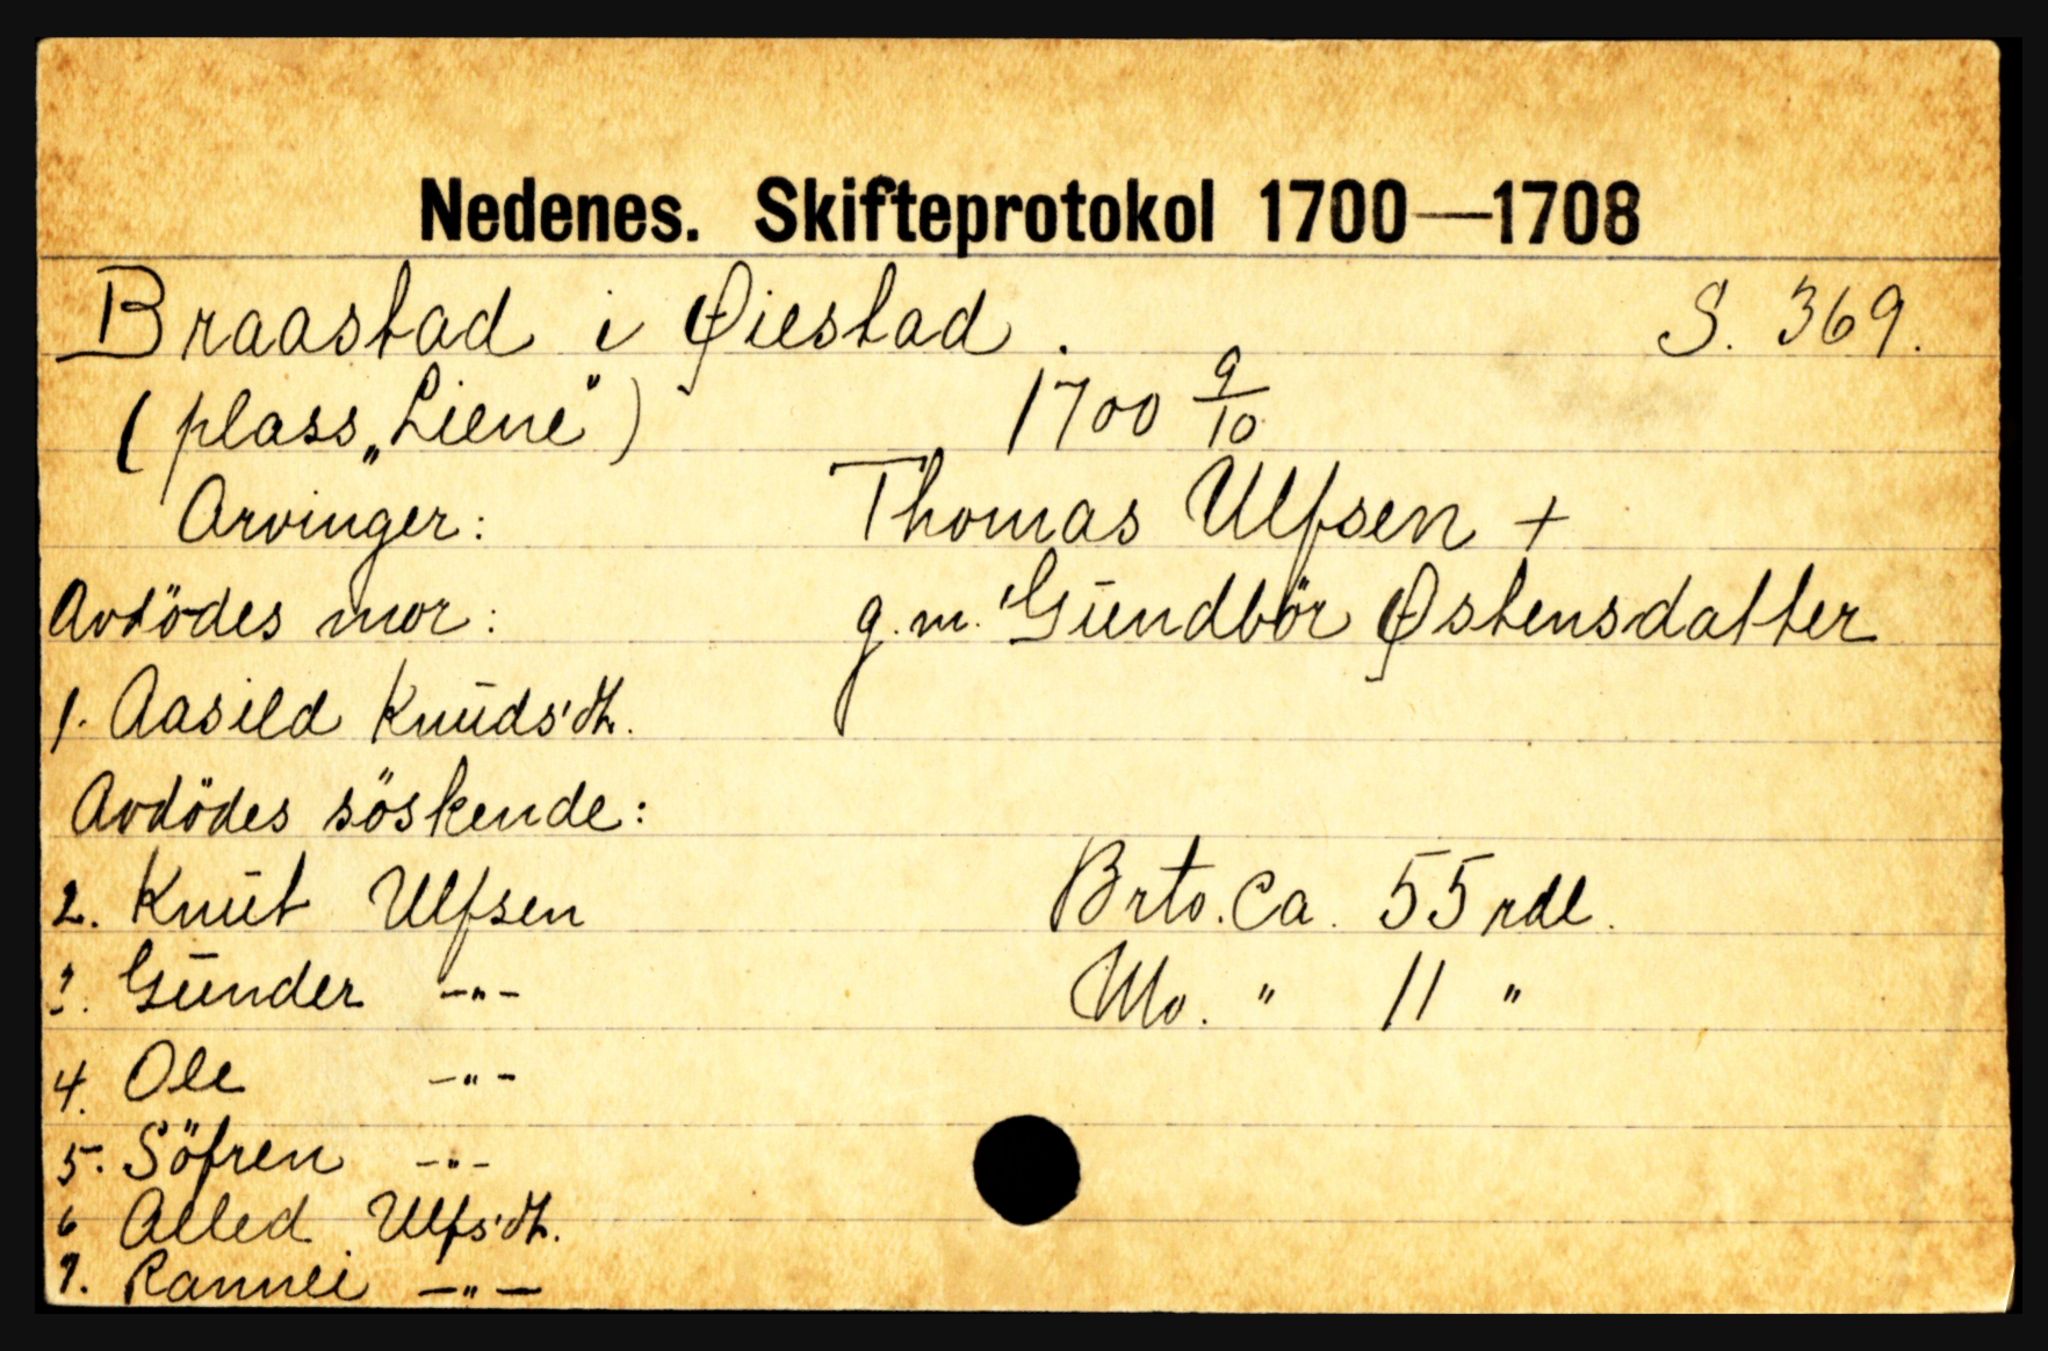 Nedenes. Skifteprotokol 1700—1708
Braastad i Øiestad. S. 369.
(plass „Liene") 1700 9/10
Arvinger: Thomas Ulfsen +
Avdödes mor: g.m. Gundbör Østensdatter
1. Aasild Knuds'dt.
Avdödes söskende:
2. Knut Ulfsen Brto. Ca. 55 rdl.
3. Gunder -"- Mo. " 11 "
4. Ole -"-
5. Söfren -"-
6 Alled Ulfs'dt.
7. Rannei -"-